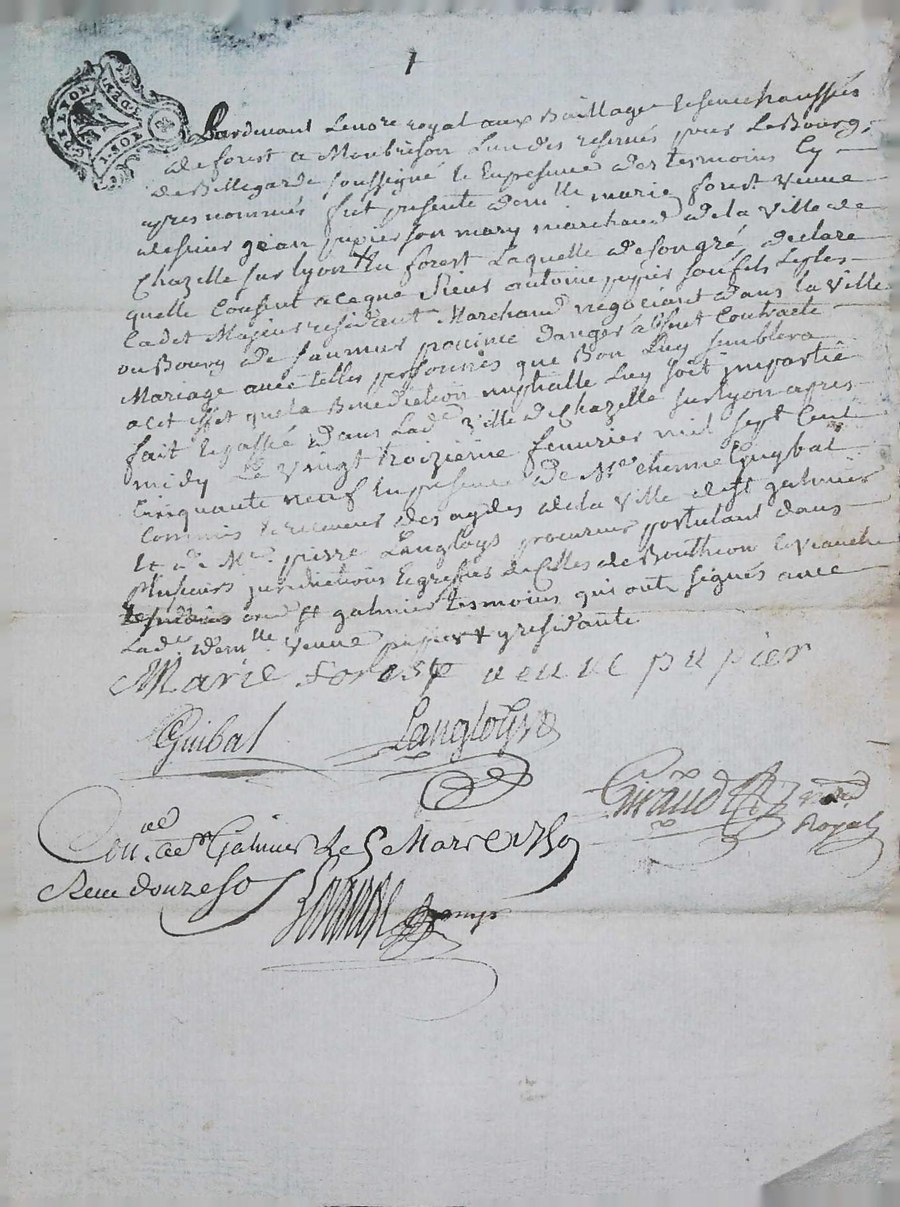 1
GEN. DE LYON
Pardevant le no.re royal aux Baillage et senechaussée
de forest a Montbrison l'un des reservés pour le Bourg
de Bellegarde soussigné et en presence des temoins cy
apres nommés fut presente dem.lle marie forest veuve
de sieur jean pupier son mary marchand de la ville de
Chazelle sur lyon en forest laquelle de son gré declare
quelle consent a ceque sieur antoine pupier son fils
Cadet Majeur residant Marchand negociant dans la ville
ou Bourg de saumur province danger contracte
Mariage avec telles personnes que Bon luy semblera
a cet effet que la Benediction nuptialle luy soit impartie
fait et passé dans lad.e ville de Chazelle sur lyon apres
midy le vingt troizieme fevrier mil sept Cent
Cinquante neuf en presence de M.re etienne Guybal
Commis receveur des aydes de la ville de st galmier
Et de M.re pierre Langloys procureur postulant dans
plusieurs juridictions et greffier de Celles de Bouthéon et Veauche
aud st galmier temoins qui ont signés avec
Lad.e dem.lle veuve pupier
Marie forest veuve pupier
Guibal
Langloys
Giraud
Royal
Con.lé a St Galmier le 5 Mars 1759
Receu douze so